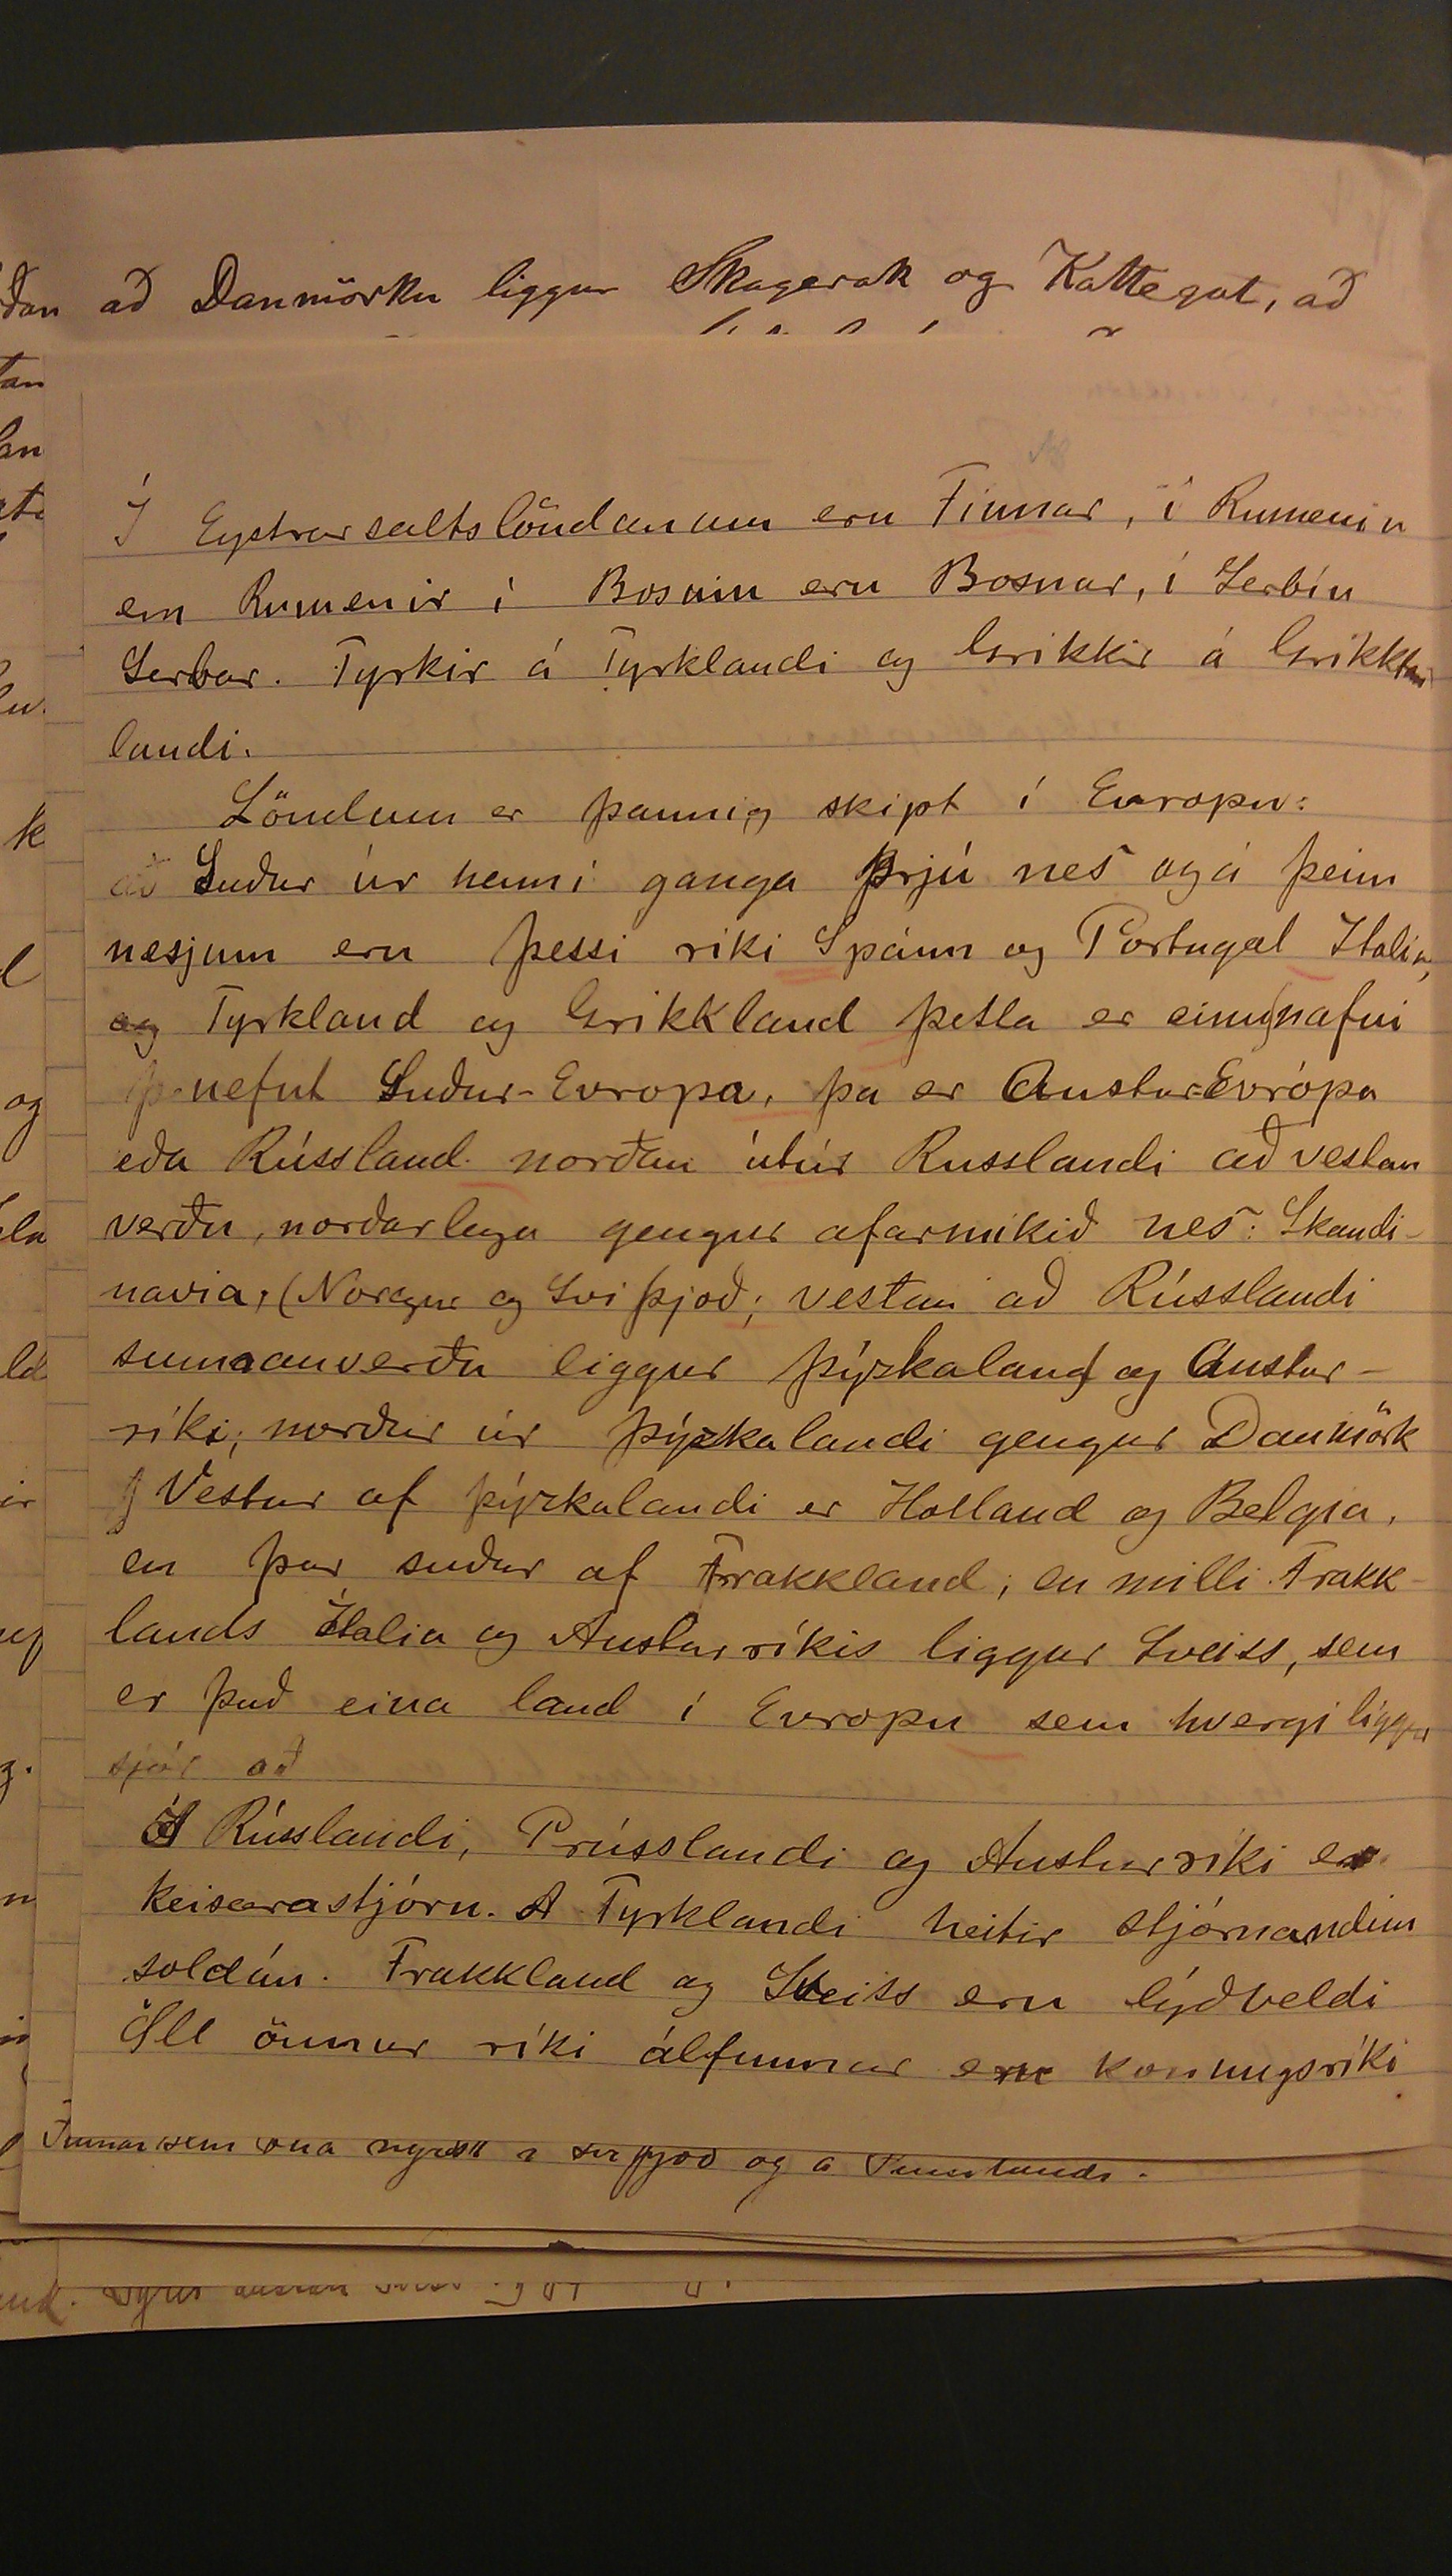 ðan að Danmörku liggur Skagerak og Kattegat, að
Í Eystrarsaltslöndunum eru Finnar, í Rumeniu
eru Rumenir í Bosniu eru Bosnar, í Serbíu
Serbar. Tyrkir á Tyrklandi og Grikkir á Grikk
landi.
Löndum er þannig skipt í Evropu:
að Suður úr henni ganga Þrjú nes og á þeim
nesjum eru þessi ríki Spánn og Portugal Italia,
og Tyrkland og Grikkland þetta er einu nafni
nefnt Suður-Evropa, þa er Austur-Evrópa
eða Rússland. norðan útúr Russlandi að vestan
verðu, norðarlega gengur afarmikið nes: Skandi-
navia, (Noregur og Sviþjoð; vestan að Rússlandi
sunnanverðu liggur Þýzkaland og Austur-
ríki; norður úr Þýzkalandi gengur Danmörk
Vestur af Þýzkalandi er Holland og Belgia,
en þar suður af Frakkland; en milli Frakk-
lands Ítalia og Austurríkis liggur Sveiss, sem
er það eina land í Evropu sem hvergi liggur
sjór að
Á Rússlandi, Prússlandi og Austurríki er
keisarastjórn. Á Tyrklandi heitir stjórnandinn
soldán. Frakkland og Sveiss eru lýðveldi
Öll önnur ríki álfunnar eru konungsríki
Finnar sem búa nyrðst á Sviþjoð og á